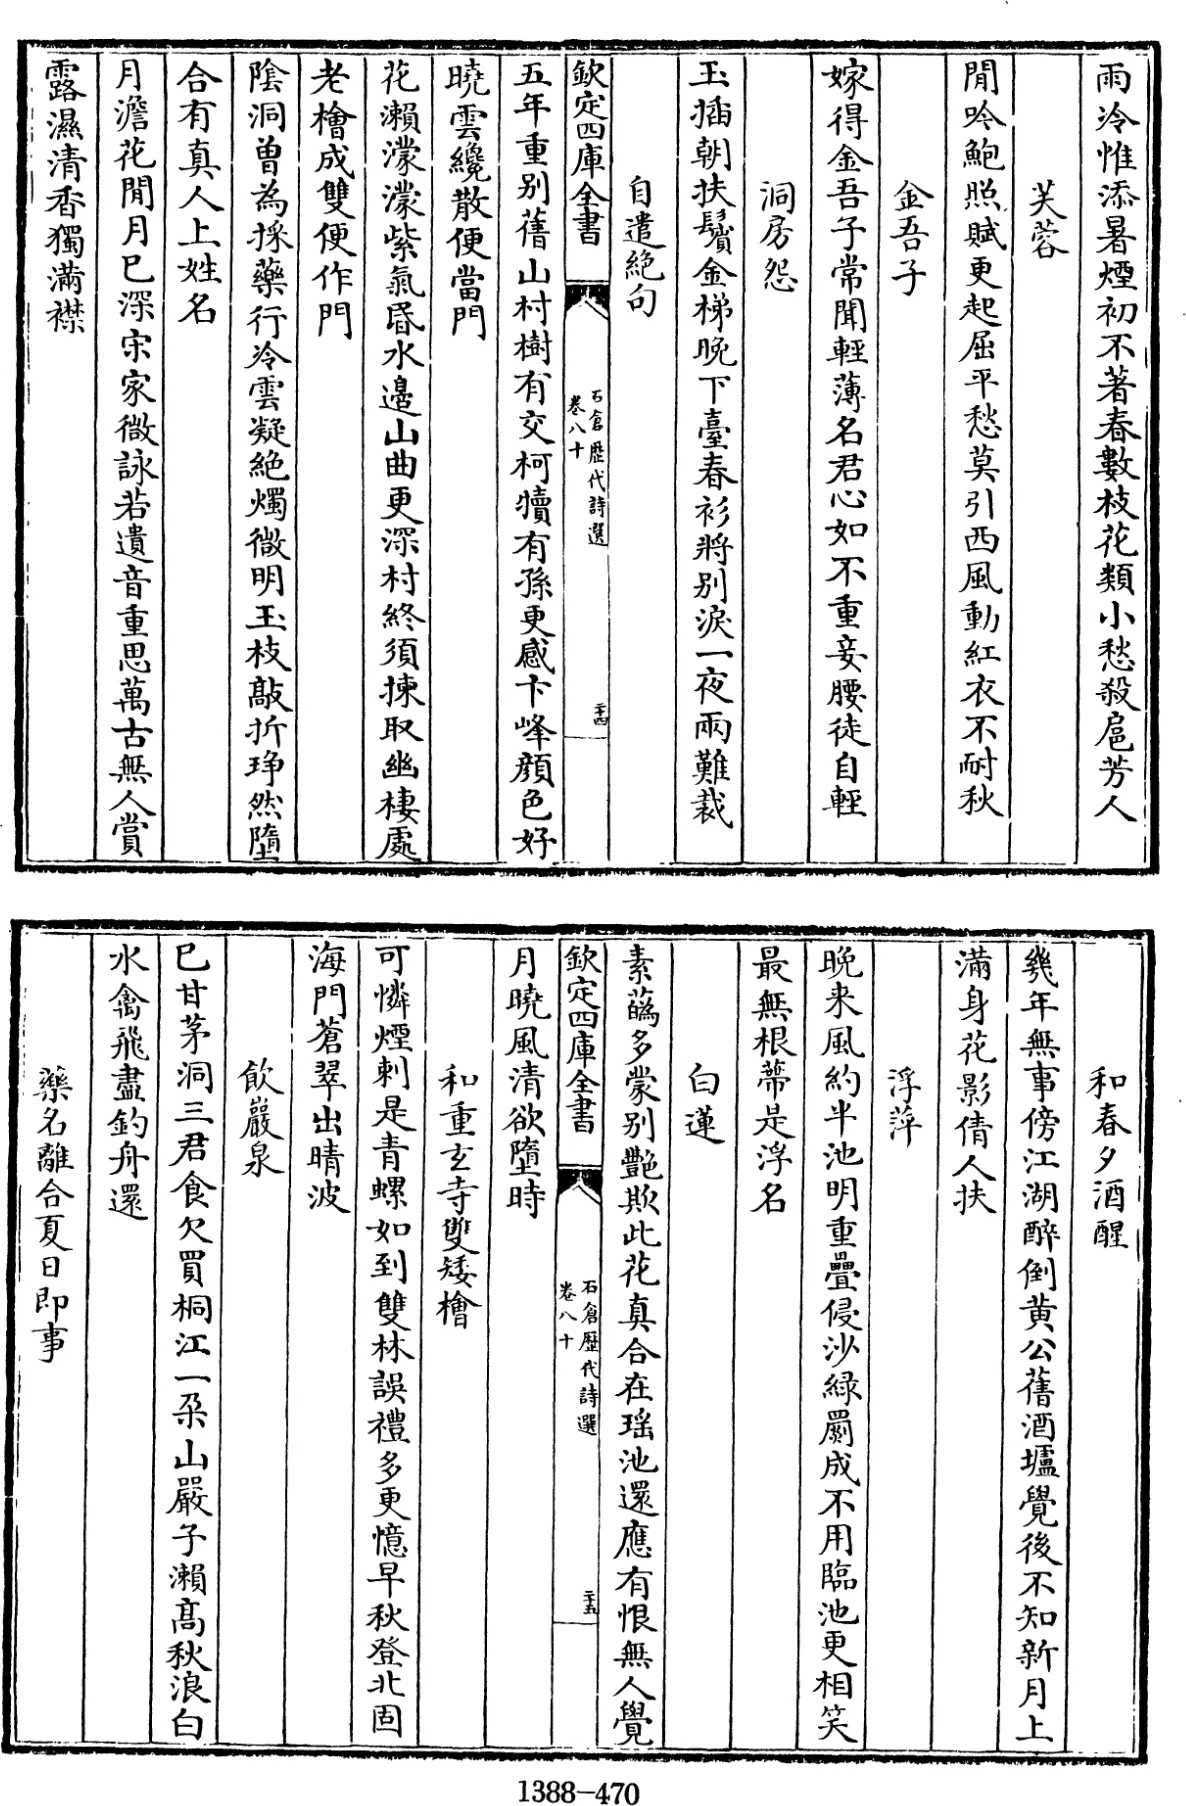 雨冷惟添暑煙初不著春數枝花類小愁殺扈芳人
芙蓉
閒吟鮑照賦更起屈平愁莫引西風動紅衣不耐秋
金吾子
嫁得金吾子常聞輕薄名君心如不重妾腰徒自輕
洞房怨
玉插朝扶鬢金梯晚下臺春衫將別淚一夜兩難裁
自遣絶句
欽定四庫全書
石倉歷代詩選
卷八十
二十四
五年重别舊山村樹有交柯犢有孫更感卞峰顔色好
曉雲纔散便當門
花瀨濛濛紫氣昏水邉山曲更深村終須揀取幽棲處
老檜成雙便作門
陰洞曽為採藥行冷雲凝絶燭微明玉枝敲折琤然墮
合有真人上姓名
月澹花閒月已深宋家微詠若遺音重思萬古無人賞
露濕清香獨滿襟
和春夕酒醒
幾年無事傍江湖醉倒黄公舊酒壚覺後不知新月上
滿身花影倩人扶
浮萍
晚来風約半池明重疊侵沙綠罽成不用臨池更相笑
最無根蔕是浮名
白蓮
素蘤多蒙别艷欺此花真合在瑶池還應有恨無人覺
欽定四庫全書
石倉歷代詩選
卷八十
二十五
月曉風清欲墮時
和重玄寺雙矮檜
可憐煙刺是青螺如到雙林誤禮多更憶早秋登北固
海門蒼翠出晴波
飲巖泉
已甘茅洞三君食欠買桐江一朶山嚴子瀨髙秋浪白
水禽飛盡釣舟還
藥名離合夏日即事
1388-470